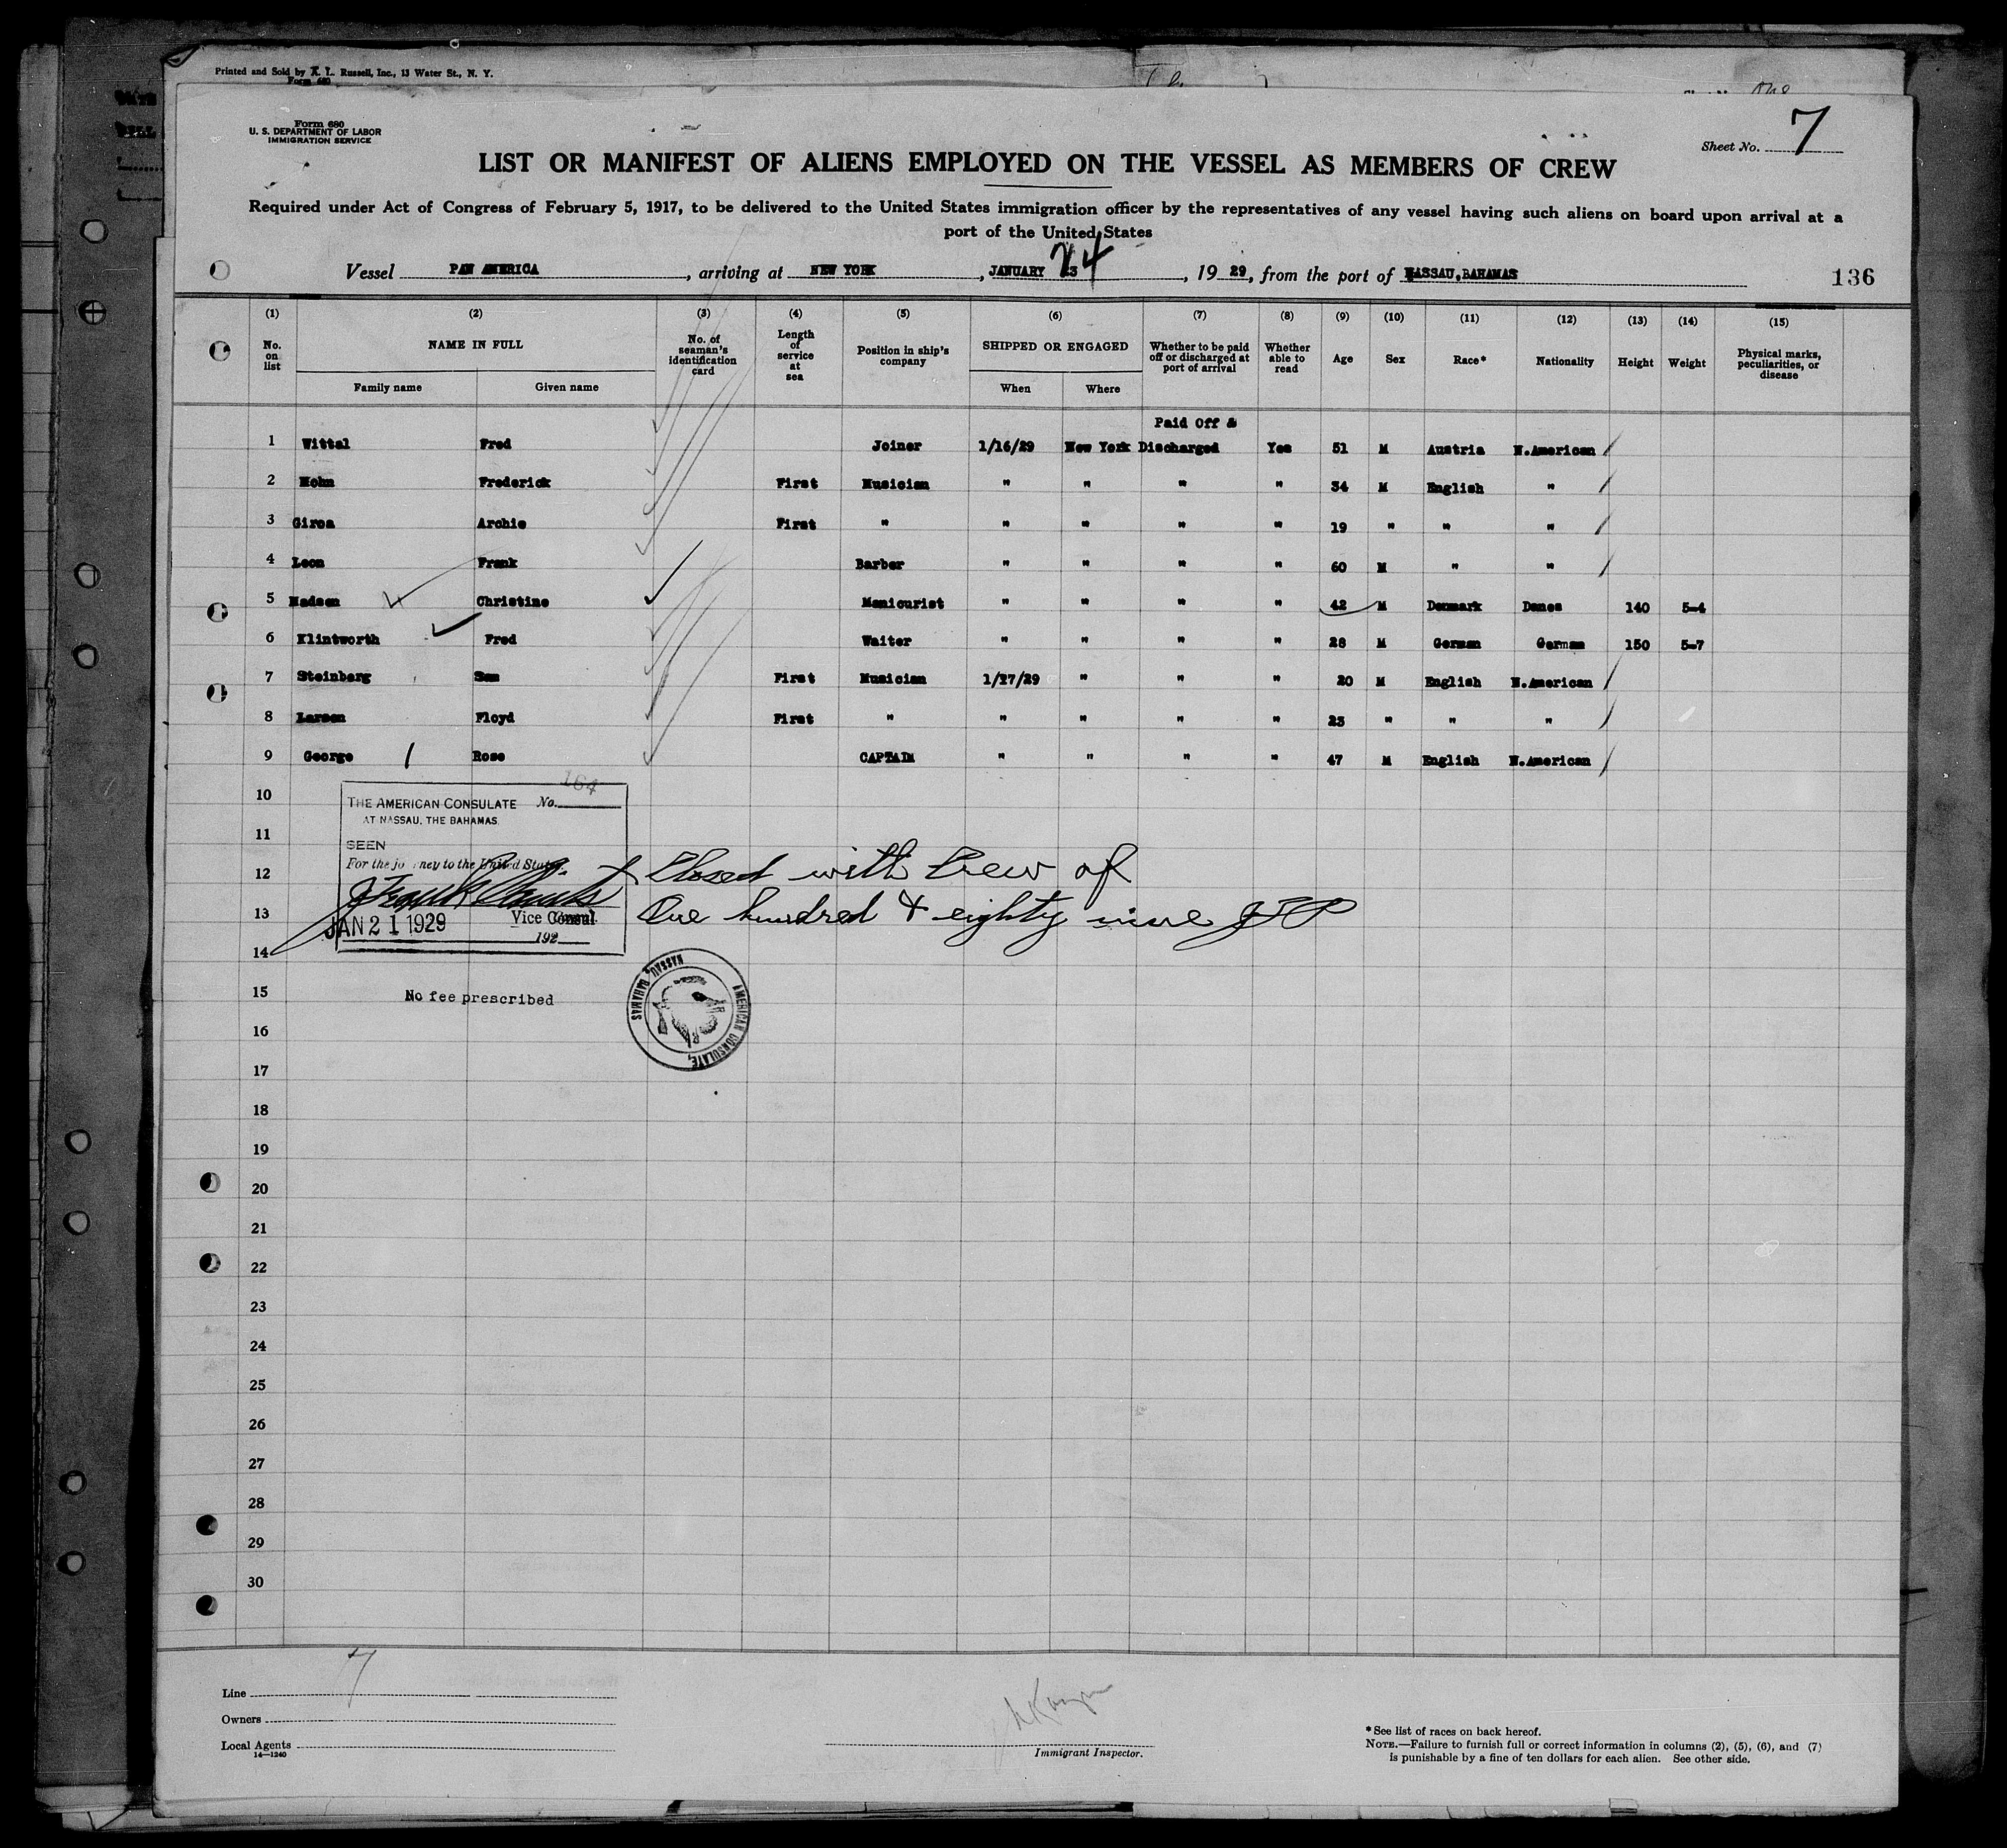 Printed and Sold by R. L. Russell, Inc., 13 Water St., N. Y.
Form 680
Form 680
U. S. DEPARTMENT OF LABOR
IMMIGRATION SERVICE
Sheet No. 7
LIST OR MANIFEST OF ALIENS EMPLOYED ON THE VESSEL AS MEMBERS OF CREW
Required under Act of Congress of February 5, 1917, to be delivered to the United States immigration officer by the representatives of any vessel having such aliens on board upon arrival at a
port of the United States
Vessel PAN AMERICA, arriving at NEW YORK, JANUARY 24, 1929, from the port of NASSAU,BAHAMAS 136
(1) (2) (3) (4) (5) (6) (7) (8) (9) (10) (11) (12) (13) (14) (15)
No. on list NAME IN FULL Family name Given name No. of seaman's identification card Length of service at sea Position in ship's company SHIPPED OR ENGAGED When Where Whether to be paid off or discharged at port of arrival Whether able to read Age Sex Race* Nationality Height Weight Physical marks, peculiarities, or disease
Paid Off &
1 Wittal Fred Joiner 1/16/29 New York Discharged Yes 51 M Austria N.American
2 Hohn Frederick First Musician " " " " 34 M English "
3 Girea Archie First " " " " " 19 " " "
4 Leon Frank Barber " " " " 60 M " "
5 Madsen Christine Manicurist " " " " 42 M Denmark Danes 140 5-4
6 Klintworth Fred Waiter " " " " 28 M German German 150 5-7
7 Steinberg Sam First Musician 1/27/29 " " " 20 M English N.American
8 Larson Floyd First " " " " " 23 " " "
9 George Rose CAPTAIN " " " " 47 M English N.American
10
11
12
13
14
15
16
17
18
19
20
21
22
23
24
25
26
27
28
29
30
THE AMERICAN CONSULATE No. 164
AT NASSAU, THE BAHAMAS
SEEN
For the journey to the United States
Vice Consul
JAN 21 1929
192
Closed with Crew of
One hundred & eighty nine
No fee prescribed
AMERICAN CONSULATE, NASSAU, BAHAMAS
Line 7
Owners
Local Agents
14—1240
Immigrant Inspector.
*See list of races on back hereof.
NOTE.—Failure to furnish full or correct information in columns (2), (5), (6), and (7)
is punishable by a fine of ten dollars for each alien. See other side.